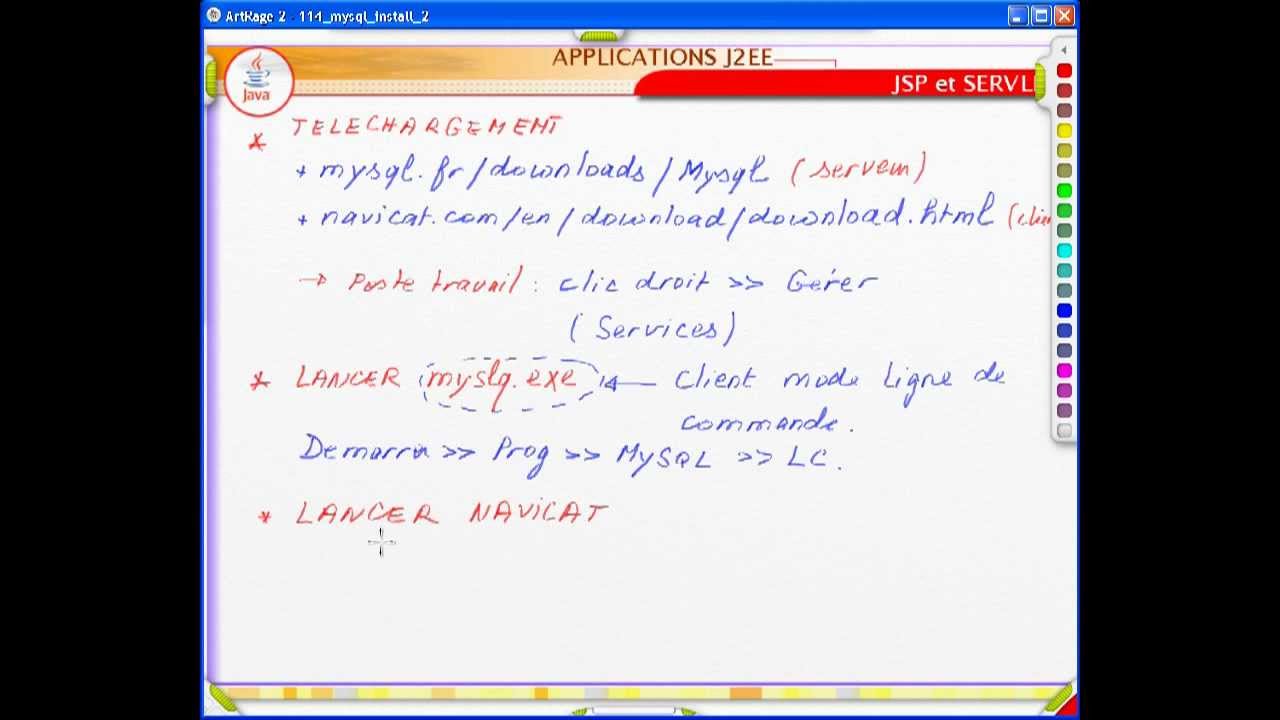 ArtRage 2 - 114_mysql_install_2
APPLICATIONS J2EE
Java
JSP et SERVL
* TELECHARGEMENT
+ mysql.fr/downloads/Mysql (serveur)
+ navicat.com/en/download/download.html (clie
→ Poste travail : clic droit >> Gérer
(Services)
* LANCER myslq.exe ← Client mode ligne de
commande.
Demarrer >> Prog >> MySQL >> LC.
* LANCER NAViCAT